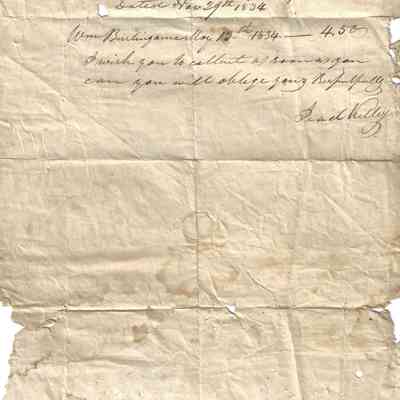 Dated Nov 29th 1834
Wm Burlingame Nov 12th 1834 — 4.50
I wish you to collect as soon as you
can you will oblige yours Respectfully
Kelley